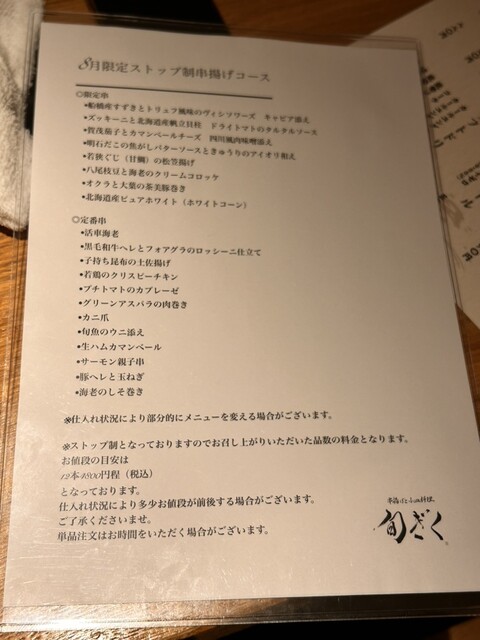 8月限定ストップ制串揚げコース
◎限定串
•船橋産すずきとトリュフ風味のヴィシソワーズ　キャビア添え
•ズッキーニと北海道産帆立貝柱　ドライトマトのタルタルソース
•賀茂茄子とカマンベールチーズ　四川風肉味噌添え
•明石だこの焦がしバターソースときゅうりのアイオリ和え
•若狭ぐじ（甘鯛）の松笠揚げ
•八尾枝豆と海老のクリームコロッケ
•オクラと大葉の茶美豚巻き
•北海道産ピュアホワイト（ホワイトコーン）
◎定番串
•活車海老
•黒毛和牛ヘレとフォアグラのロッシーニ仕立て
•子持ち昆布の土佐揚げ
•若鶏のクリスピーチキン
•プチトマトのカプレーゼ
•グリーンアスパラの肉巻き
•カニ爪
•旬魚のウニ添え
•生ハムカマンベール
•サーモン親子串
•豚ヘレと玉ねぎ
•海老のしそ巻き
※仕入れ状況により部分的にメニューを変える場合がございます。
※ストップ制となっておりますのでお召し上がりいただいた品数の料金となります。
お値段の目安は
12本4800円程（税込）
となっております。
仕入れ状況により多少お値段が前後する場合がございます。
ご了承くださいませ。
単品注文はお時間をいただく場合がございます。
旬ざく